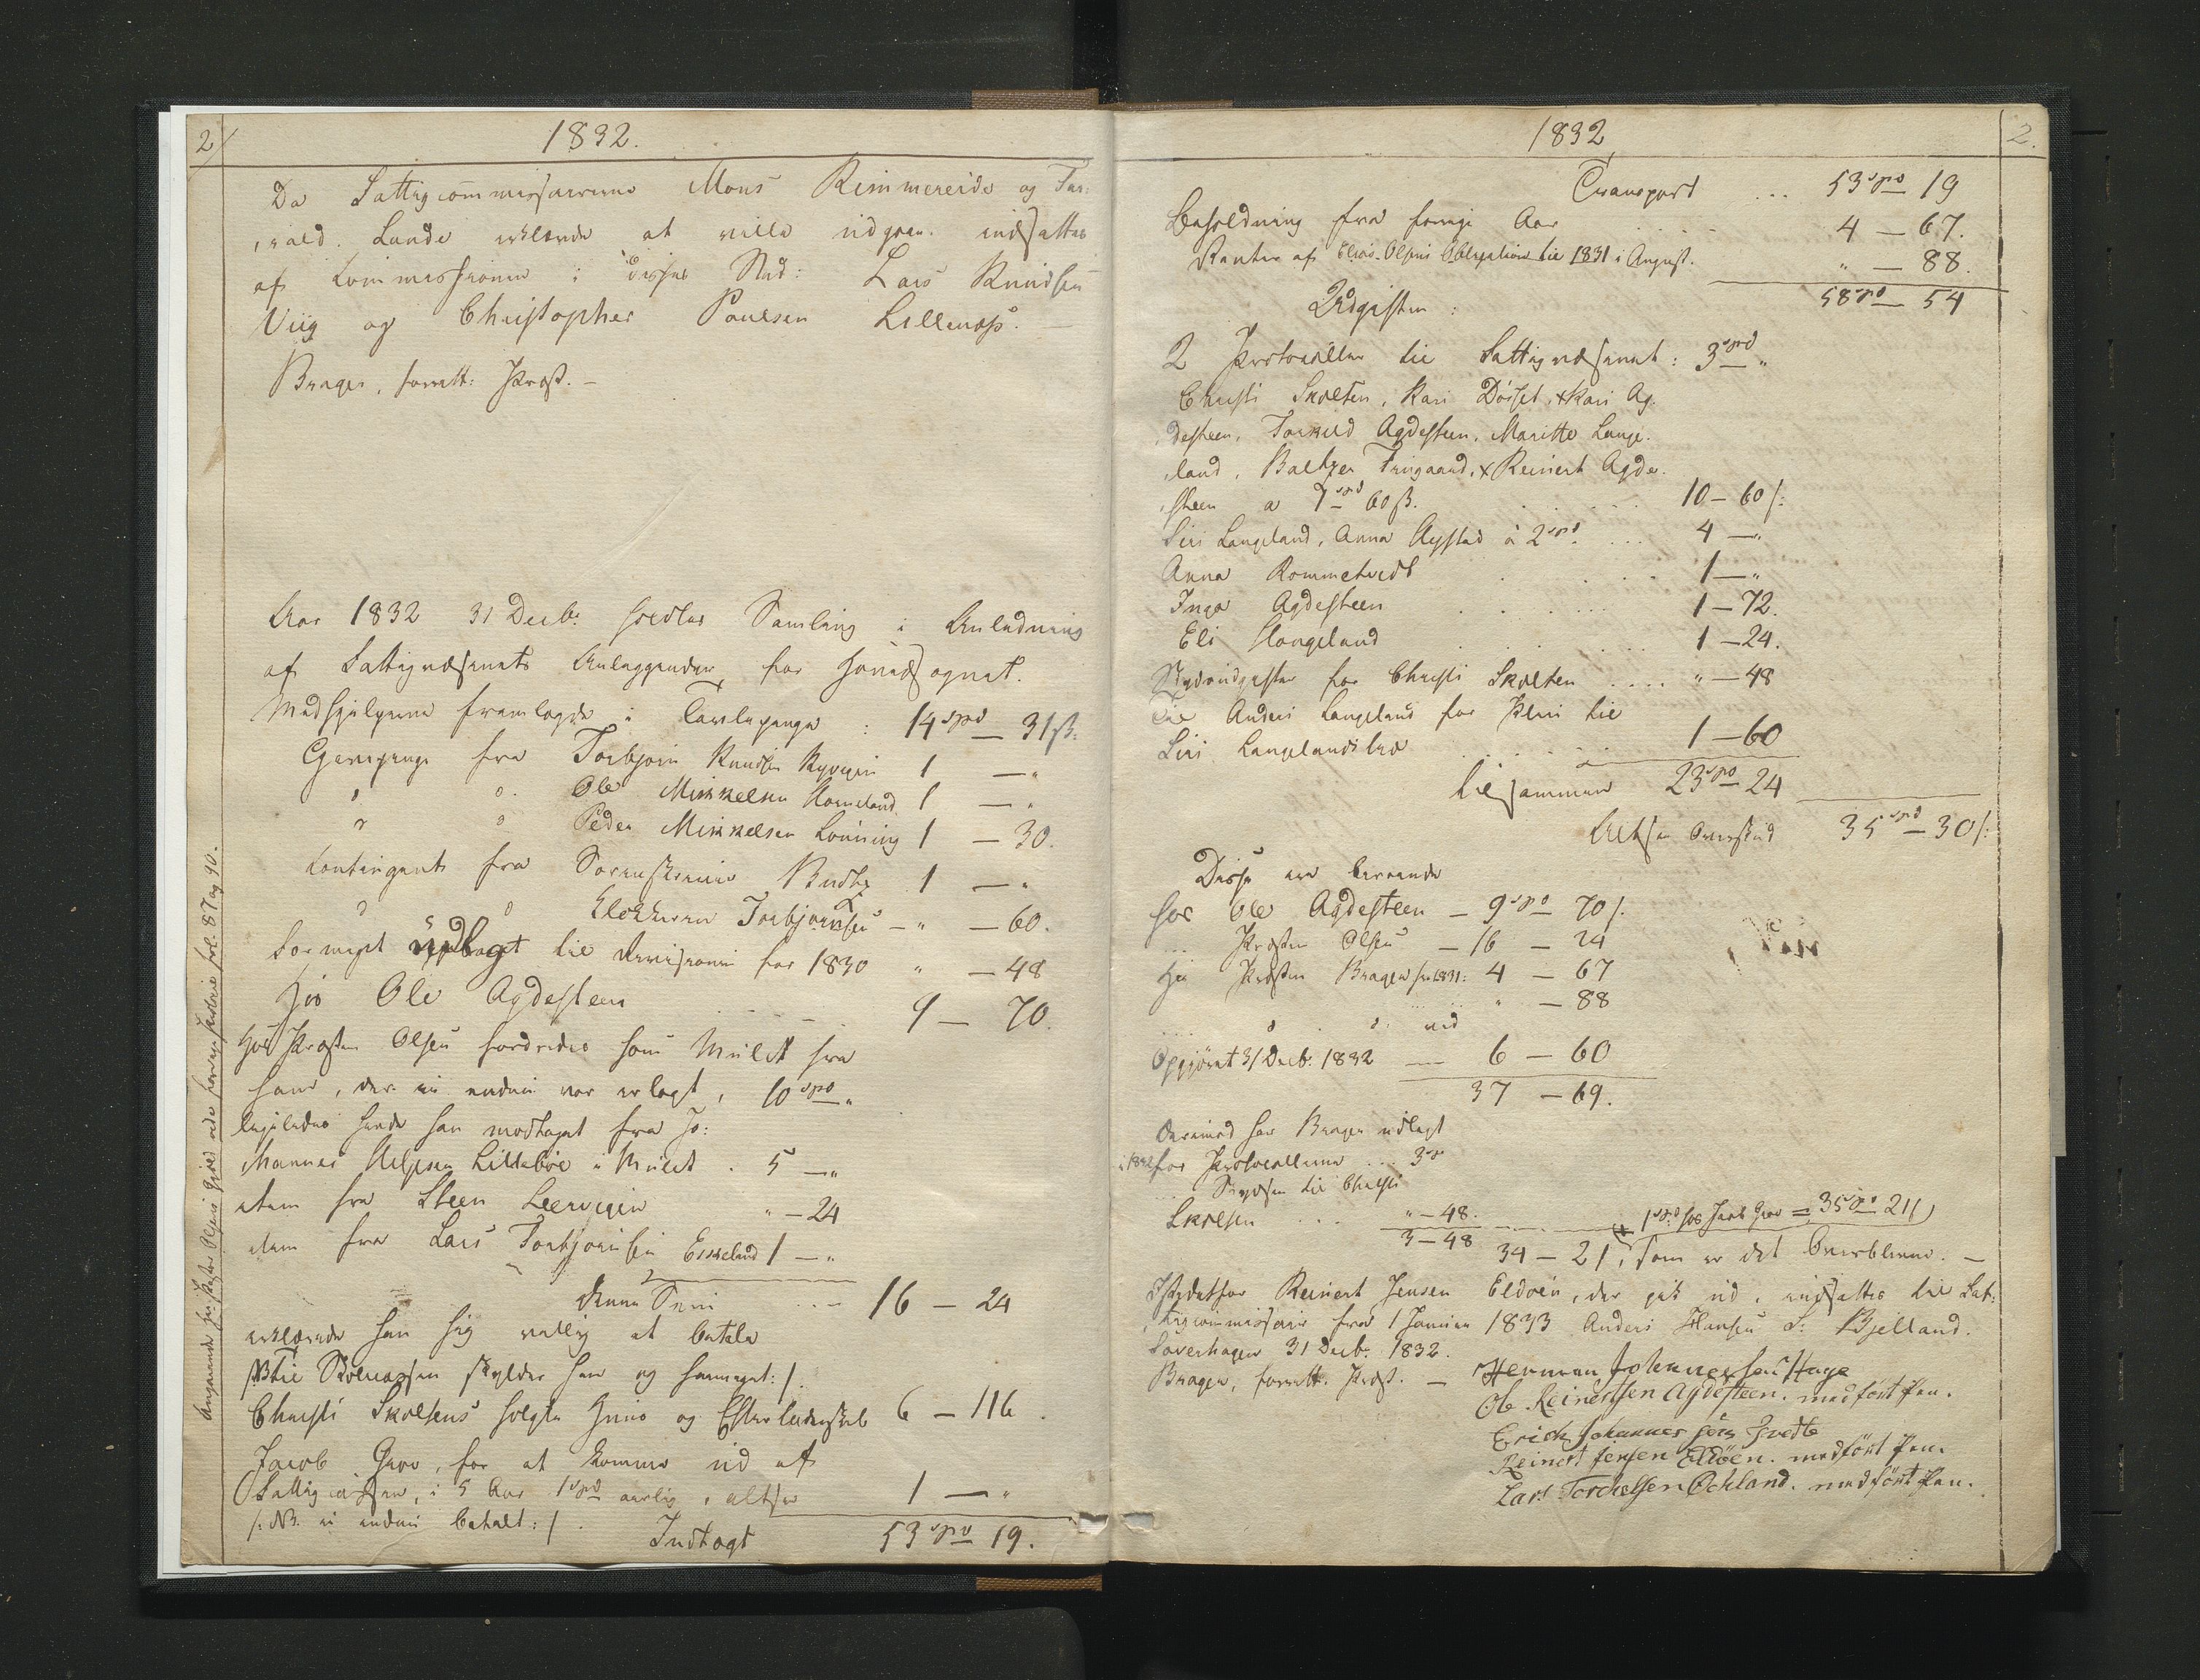 2/
1832.
Da Fattigcommissairerne Mons Rimmereide og Tar:
,rald. Lunde erklærede at ville udgaae. indsattes
af Commissionen i disses Sted: Lars Knudsen
Viig og Christopher Poulsen Lillenæss. —
Brager, forrett: Præst. —
Aar 1832 31 Decb: holdtes Samling i Anledning
af Fattigvæsenets Anliggender for Hovedsognet.
Medhjelperne fremlagde i Tavlepenge : 14 spd — 31 ß.
Gavepenge fra Torbjørn Knudsen 1 — "
" " Ole Mikkelsen Horneland 1 — "
" " Peder Mikkelsen Lønning 1 — 30.
Contingent fra Sorenskriver Budtz 1 — "
" " Klokkeren Torbjørnsen — " — 60.
Formeget udlagt til Revisionen for 1830 " — 48
Hos Ole Agdesteen 9 — 70.
Hos Præsten Olsen fordredes som Mulct fra
ham, der ei endnu var erlagt, 10 spd "
ligeledes havde han modtaget fra Jo:
hannes Lillebøe i Mulct . 5 — "
item fra Steen Leervigen " — 24
item fra Lars Torbjørnsen Eskeland 1 — "
denne Sum ... — 16 — 24
erklærede han sig villig at betale
Christi Skoltens solgte Huus og Efterladenskab 6 — 116.
Jacob Grov, for at komme ud af
Fattigcassen, i 5 Aar 1 spd aarlig, altsaa 1 — "
/: NB. ei endnu betalt :/
Indtægt 53 spd 19.
1832
2.
Transport ... 53 spd 19
Beholdning fra forrige Aar 4 — 67.
Renter af Olsens Obligation til 1831 i August. " — 88.
58 spd — 54
Udgifter :
2 Protocoller til Fattigvæsenet : 3 spd "
Christi Skolten, Kari Døsset, + Kari Ag:
desteen, Torkild Agdesteen, Maritte Lange-
land, Baltzer Trugaard, + Reinert Agde-
steen a 1 spd 60 ß. 10 — 60 /:
Siri Langeland, Anna Agstad à 2 spd. ... 4 — "
Anna Rommetvedt 1 — "
Inga Agdesteen 1 — 72.
Eli Hougeland 1 — 24.
for Christi Skolten .... " — 48
Til Anders Langeland for Pleie til
Siri Langeland 1 — 60
tilsammen 23 spd — 24
Altsaa Overskud 35 spd — 30 /:
Disse ere beroende
hos Ole Agdesteen — 9 spd — 70 /.
... Præsten Olsen — 16 — 24
Hos Præsten Brager fra 1831: 4 — 67
" — 88
ved
Opgjøret 31 Decb: 1832 — 6 — 60
37 — 69.
Derimod har Brager udlagt
i 1832 for Protocollerne ... 3 spd
til Christi
Skolten ... " — 48.
3 — 48
1 spd hos Jacob Grov = 35 spd 21 /)
34 — 21, som er det Overblevne. —
Istedetfor Reinert Jensen Eldøen, der gik ud, indsattes til Fat:
tigcommissair fra 1 Januar 1833 Anders Hansen S: Bjelland.
31 Decb. 1832.
Brager, forrett. Præst. — Herman Johannessen Hage
Ole Reinertsen Agdesteen. med ført Pen.
Erich Johannessen Tvedte
Reinert Jensen Eldøen. med ført Pen.
Lars Torchelsen Echland. med ført Pen.